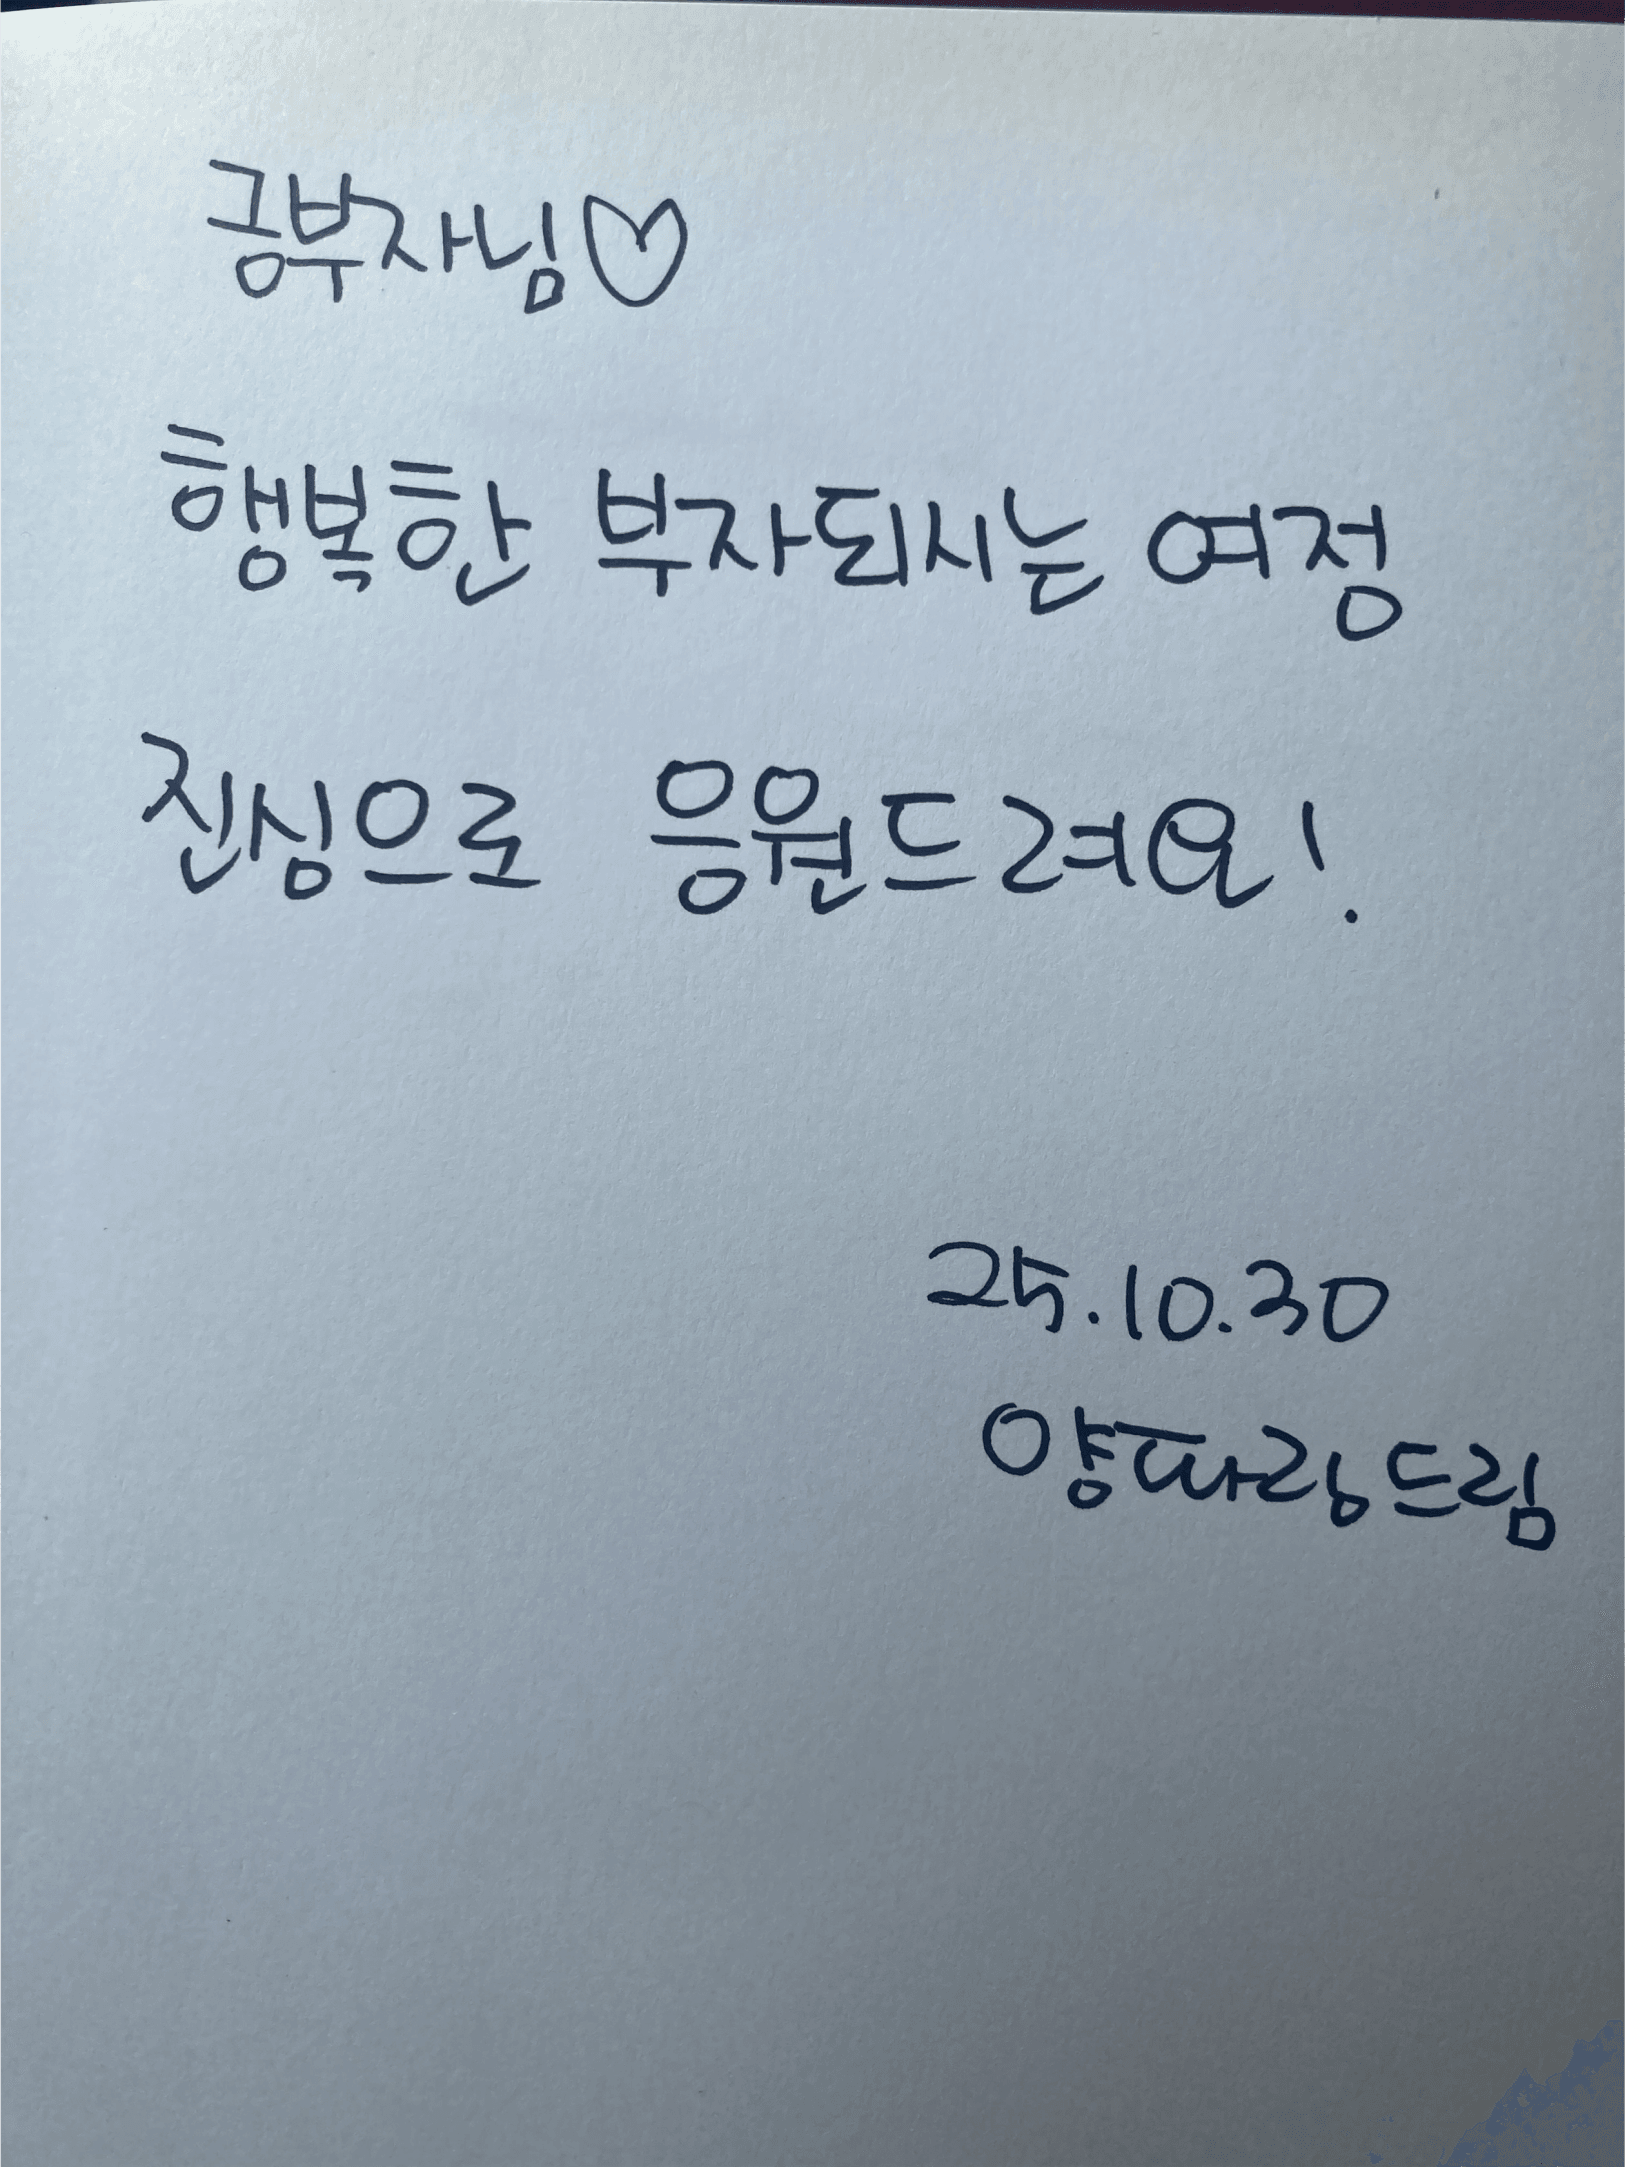 금부자님♡
행복한 부자되시는 여정
진심으로 응원드려요!
25.10.30
양파링드림